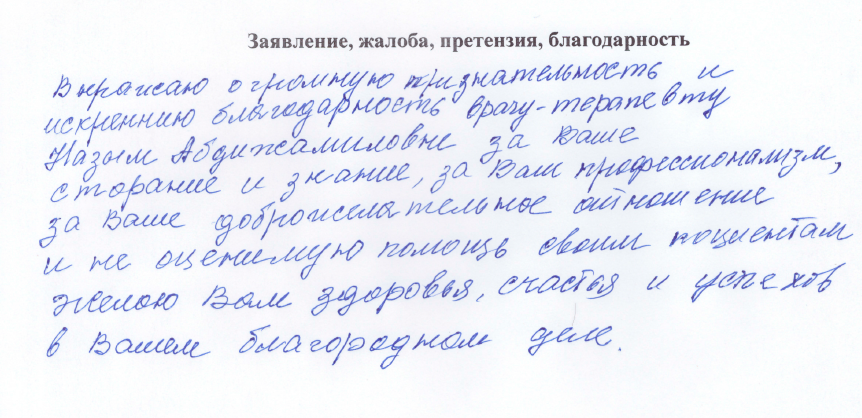 Заявление, жалоба, претензия, благодарность
Выражаю огромную признательность и
искреннию благодарность врачу-терапевту
Назым Абдижамиловне за Ваше
сторание и знание, за Ваш профессионализм,
за Ваше доброжелательное отношение
и не оценимую помощь своим поциентам
желою Вам здоровья, счастья и успехов
в Вашем благородном деле.